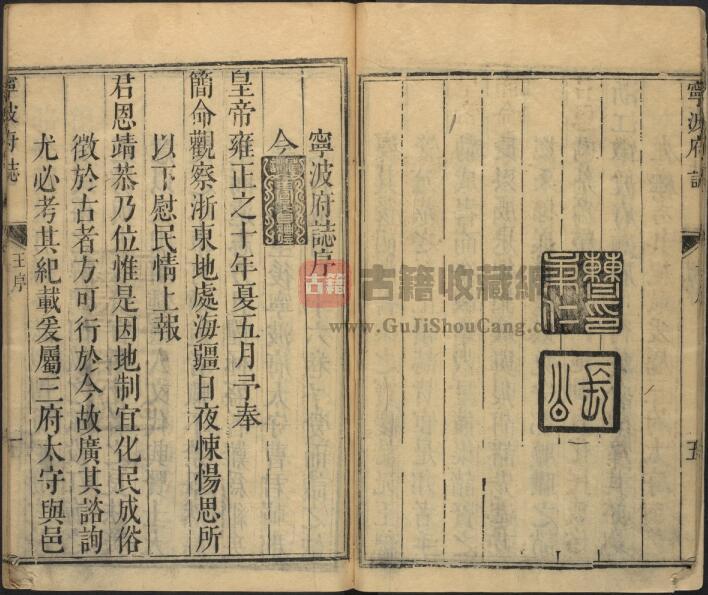 寧波府誌
五
寧波府誌序
今
皇帝雍正之十年夏五月予奉
簡命觀察浙東地處海疆日夜悚惕思所
以下慰民情上報
君恩靖恭乃位惟是因地制宜化民成俗
徵於古者方可行於今故廣其諮詢
尤必考其紀載爰屬三府太守與邑
寧波府誌
王序
一
古籍
古籍收藏网
www.GuJiShouCang.com